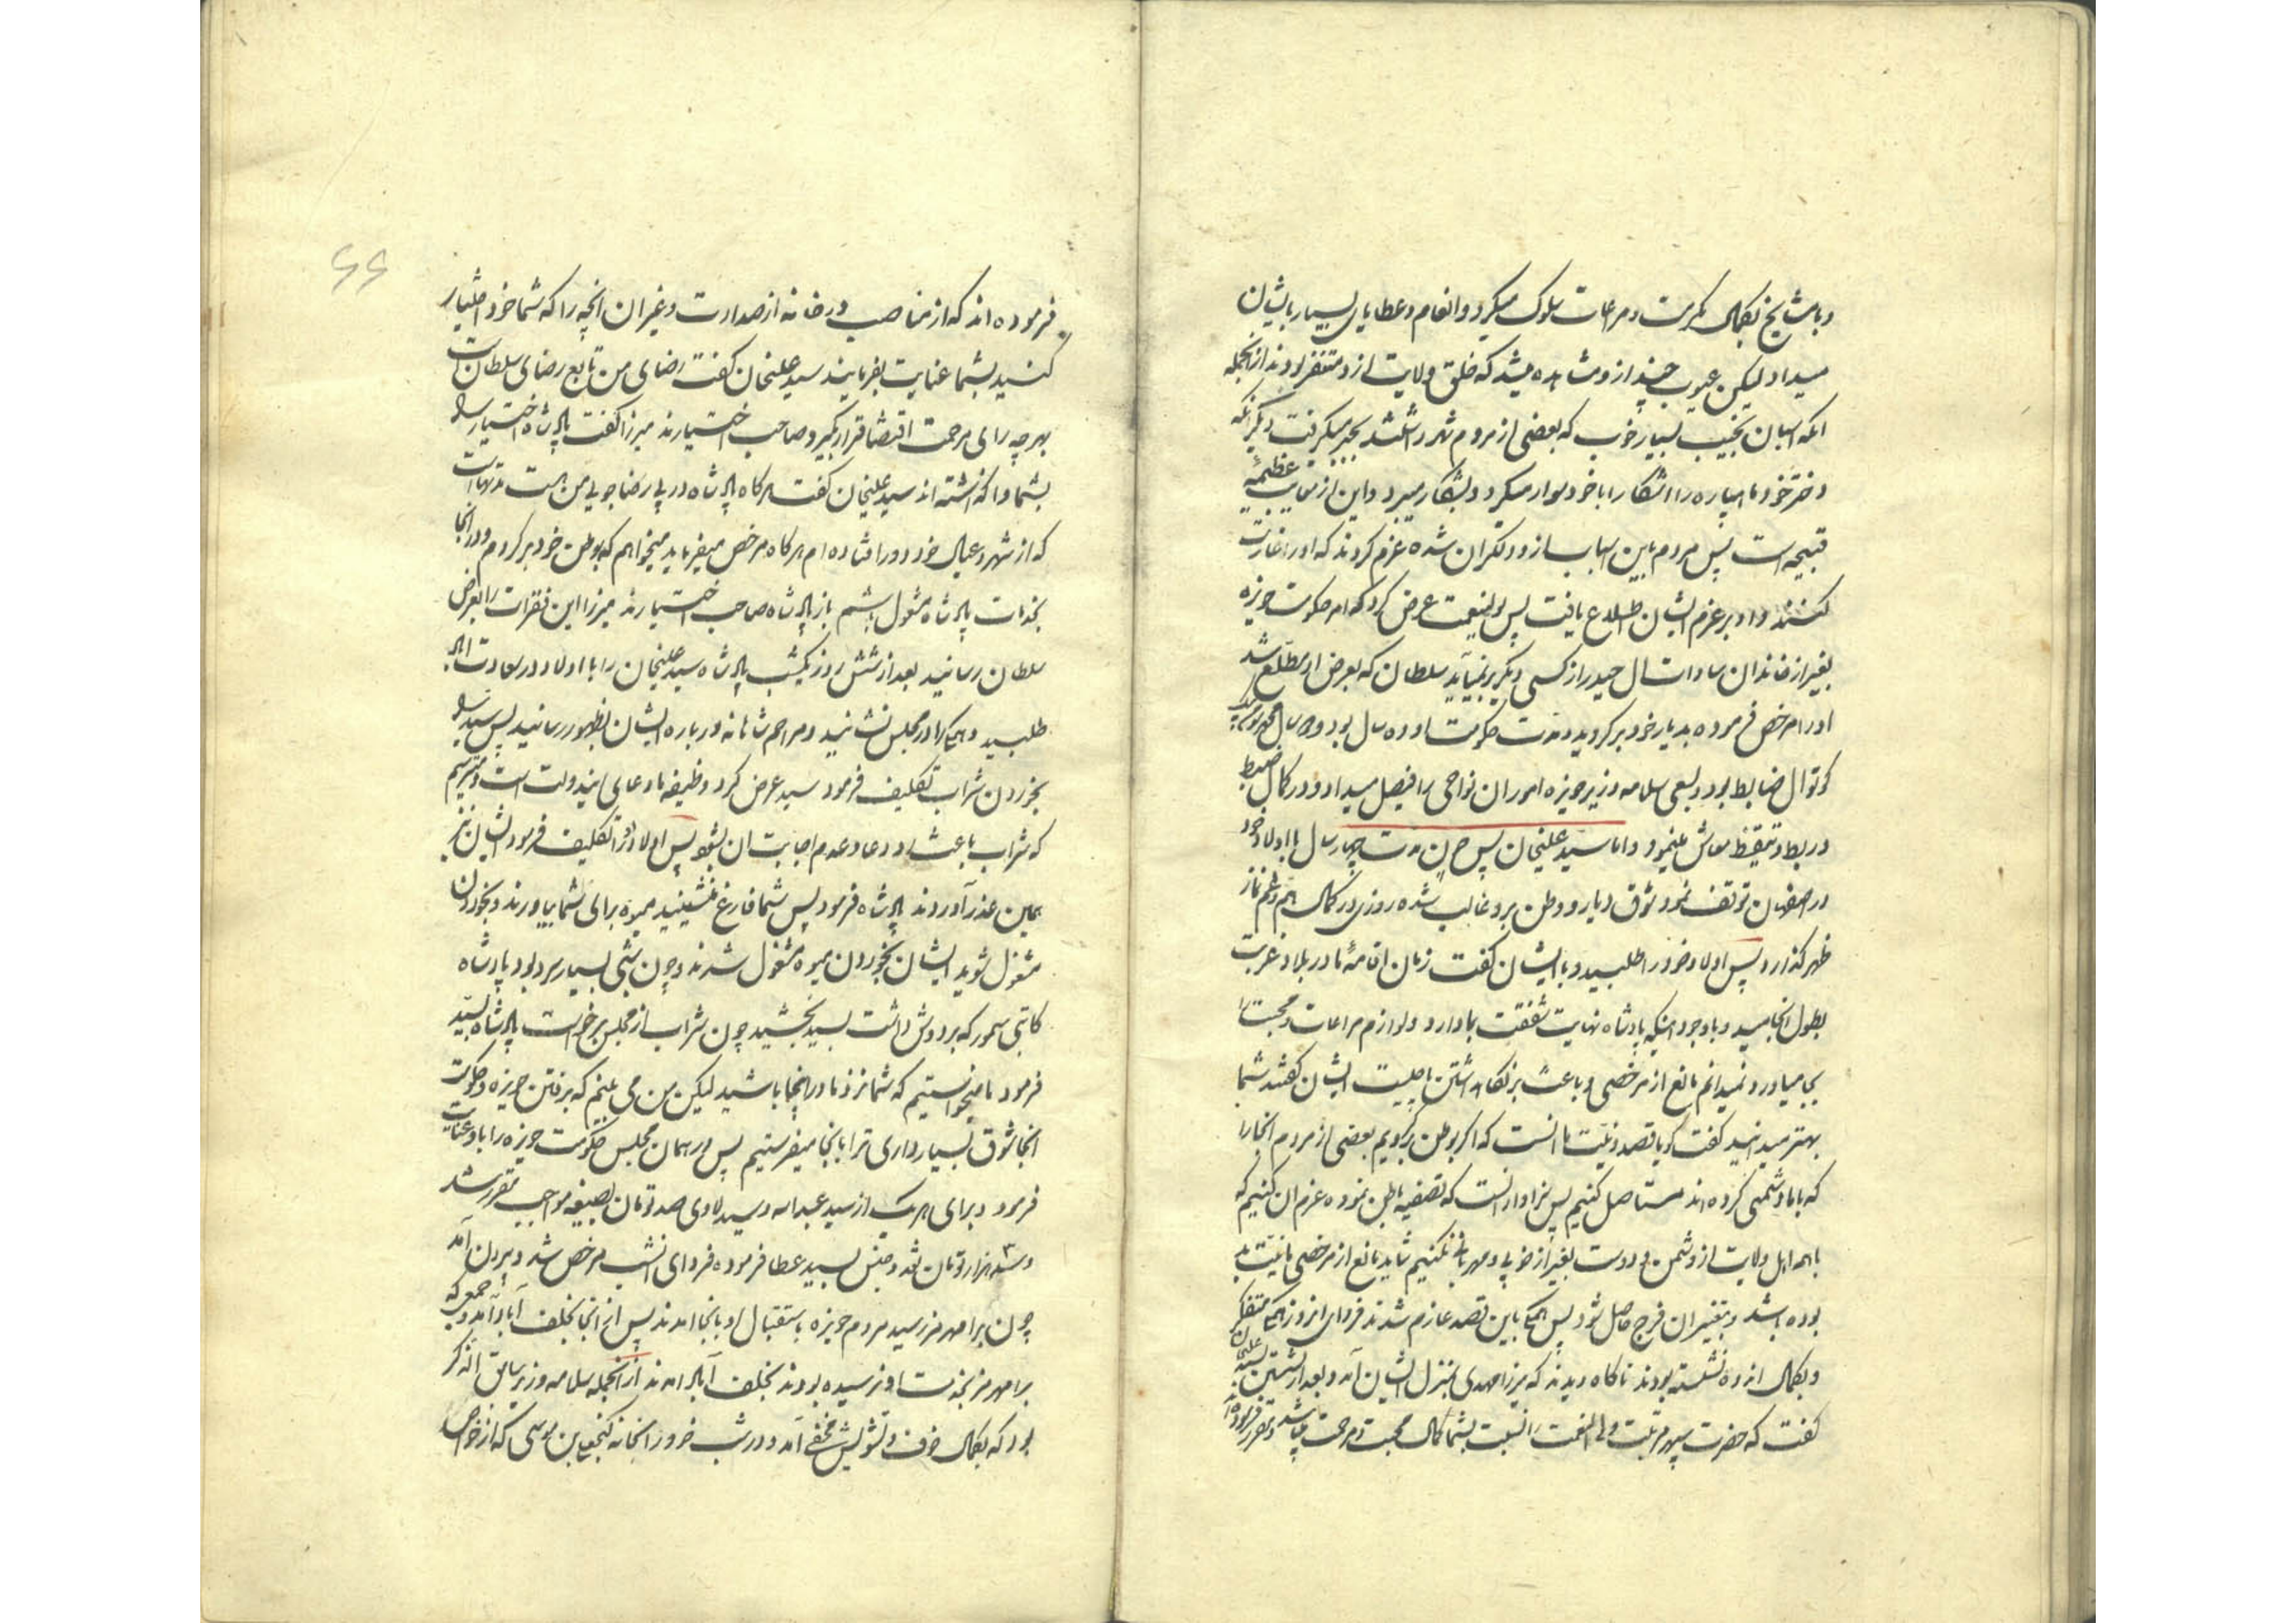 و با مشایخ بکمال مکرمت و مراعات سلوک میکرد و انعام و عطایای بسیار بایشان
میداد لیکن عیوب چند از و مشاهده میشد که خلق ولایت از و متنفر بودند از آنجمله
آنکه اسبان نجیب بسیار خوب که بعضی از مردم شهر داشتند بجبر میگرفت دیگر آنکه
دختر خود ماهپاره را آشکارا با خود سوار میکرد و بشکار میبرد و این از معایب عظیمهٔ
قبیحه است پس مردم باین اسباب از و دلگران شده عزم کردند که او را غارت
کنند و او بر عزم ایشان اطلاع یافت پس بولینعمت عرض کرد که امر حکومت حویزه
بغیر از خاندان سادات ال حیدر از کسی دیگر بر نمیآید سلطان که بعرض او مطلع شد
او را مرخص فرموده بدیار خود برگردید و مدت حکومت او ده سال بود و دو سال
کوتوال ضابط بود و بسعی سلامه وزیر حویزه امور ان نواحی را فیصل میداد و در کمال ضبط
و ربط و تیقظ معاش مینمود و اما سید علیخان پس چون مدت چهار سال با اولاد خود
در اصفهان توقف نمود شوق دیار و وطن برو غالب شده روزی در کمال هم و غم نماز
ظهر گذارد پس اولاد خود را طلبید و بایشان گفت زمان اقامهٔ ما در بلاد غربت
بطول انجامید و با وجود اینکه پادشاه نهایت شفقت بما دارد و لوازم مراعات و محبت را
بجا میاورد نمیدانم مانع از مرخصی و باعث بر نگاه داشتن ما چیست ایشان گفتند شما
بهتر میدانید گفت گویا قصد و نیت ما آنست که اگر بوطن برگردیم بعضی از مردم آنجا را
که با ما دشمنی کرده اند مستاصل کنیم پس سزاوار آنست که تصفیه باطن نموده عزم آن کنیم که
با همه اهل ولایت از دشمن و دوست بغیر از خوبی و مهربانی نکنیم شاید مانع از مرخصی ما نیت بد
بوده باشد و بتغییر ان فرج حاصل شود پس همگی باین قصد عازم شدند فردای انروز همگی متفکر
و بکمال اندوه نشسته بودند ناگاه دیدند که میرزا مهدی بمنزل ایشان آمد و بعد از نشستن بسید علیخان
گفت که حضرت سپهر مرتبت ولی النعمت را نسبت بشما کمال محبت و مرحمت میباشد و مقرر فرموده اند
۶۶
فرموده اند که از مناصب درخانه از صدارت و غیر ان انچه را که شما خود اختیار
کنید بشما عنایت بفرمایند سید علیخان گفت رضای من تابع رضای سلطان است
بهر چه رای مرحمت اقتضا قرار بگیرد صاحب اختیارند میرزا گفت پادشاه اختیار را
بشما واگذاشته اند سید علیخان گفت هرگاه پادشاه در پی رضا جویی من هست مدتهاست
که از شهر و عیال خود دور افتاده ام هرگاه مرخص میفرماید میخواهم که بوطن خود برگردم و در آنجا
بخدمات پادشاه مشغول باشم باز پادشاه صاحب اختیارند میرزا این فقرات را بعرض
سلطان رسانید بعد از شش روز یکشب پادشاه سید علیخان را با اولاد در سعادت اباد
طلبید و همگی را در مجلس نشانید و مراحم شاهانه در باره ایشان بظهور رسانید پس سید را
بخوردن شراب تکلیف فرمود سید عرض کرد وظیفه ما دعای ایندولت است و میترسیم
که شراب باعث رد دعا و عدم اجابت ان بشود پس اولاد او را تکلیف فرمود ایشان نیز
همین عذر آوردند پادشاه فرمود پس شما فارغ ننشینید میوه برای شما بیاورند و بخوردن
مشغول شوید ایشان بخوردن میوه مشغول شدند و چون شبی بسیار سرد بود پادشاه
کاتبی سمور که بر دوش داشت بسید بخشید چون شراب از مجلس برخواست پادشاه بسید
فرمود ما میخواستیم که شما نزد ما در اینجا باشید لیکن من می بینم که برفتن حویزه و حکومت
آنجا شوق بسیار داری ترا بانجا میفرستیم پس در همان مجلس حکومت حویزه را باو عنایت
فرمود و برای هر یک از سید عبدالله و سید هادی صد تومان بصیغه مواجب مقرر شد
و سه هزار تومان نقد و جنس بسید عطا فرموده فردای انشب مرخص شد و بیرون آمد
چون برامهرمز رسید مردم حویزه باستقبال او بانجا امدند پس از آنجا بخلف آباد آمد و جمعی که
برامهرمز بخدمت او نرسیده بودند بخلف آباد امدند از آنجمله سلامه وزیر سابق الذکر
بود که بکمال خوف و تشویش مخفی آمد و در شب خود را بخانه گنجعلی بن موسی که از خواص